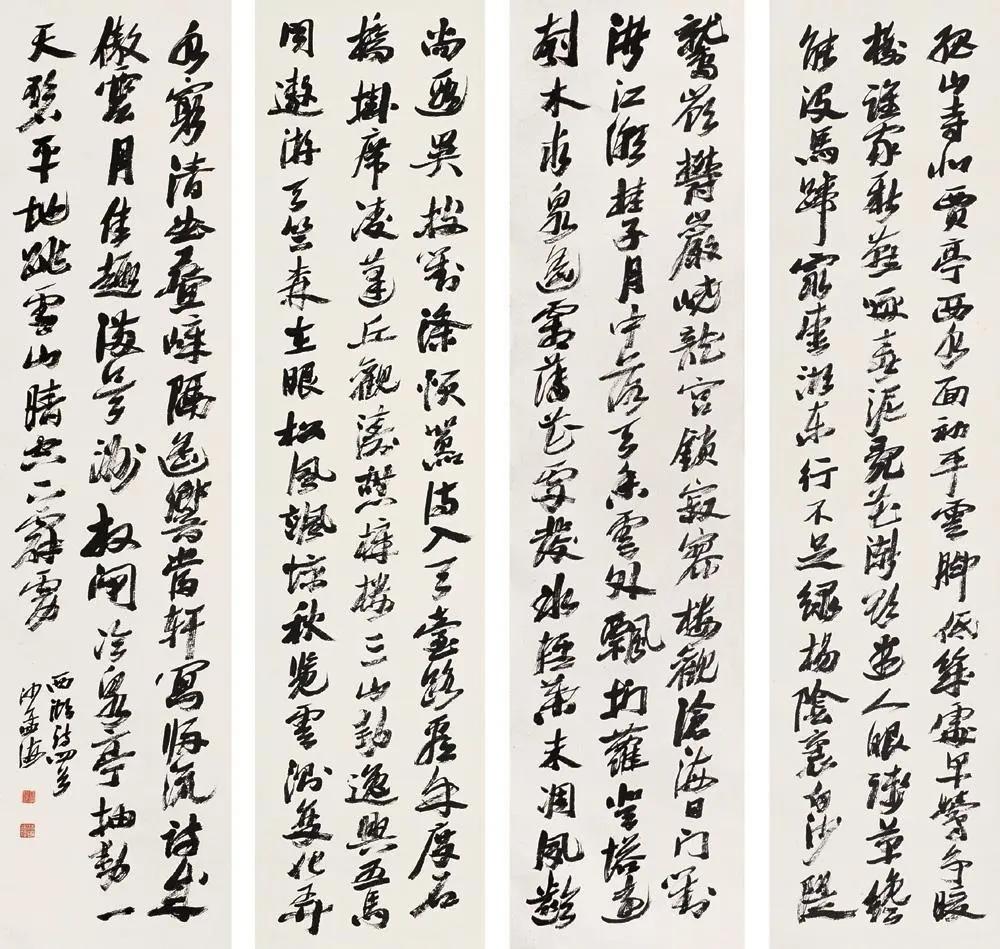 孤山寺北賈亭西水面初平雲脚低幾處早鶯爭暖
樹誰家新燕啄春泥亂花漸欲迷人眼淺草纔
能沒馬蹄最愛湖東行不足綠楊陰裏白沙堤
鷲嶺鬱巖嶢龍宮鎖寂寥樓觀滄海日門對
浙江潮桂子月中落天香雲外飄捫蘿登塔遠
刳木取泉遙霜薄花更發冰輕葉未凋夙齡
尚遐異投對滌煩囂待入天臺路看余度石
橋掛席凌蓬丘觀濤憩樟樓三山動逸興五馬
同遨游天竺森在眼松風颯驚秋覽雲測變化弄
水窮清幽疊嶂隔遙當軒寫歸流詩成
傲雲月佳趣滿吳洲放閘冷泉亭抽動一
天碧平地跳雪山晴空下霹靂
西湖詩四首
沙孟海